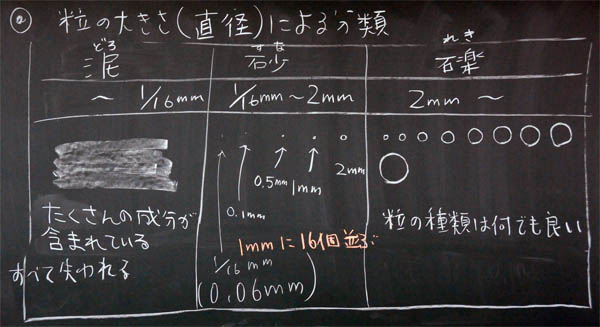 ② 粒の大きさ(直径)による分類
どろ
泥
～ 1/16mm
たくさんの成分が
含まれている
すべて失われる
すな
砂
1/16mm～2mm
0.5mm
1mm
2mm
0.1mm
1mmに16個並ぶ
1/16 mm
(0.06mm)
れき
礫
2mm ～
粒の種類は何でも良い